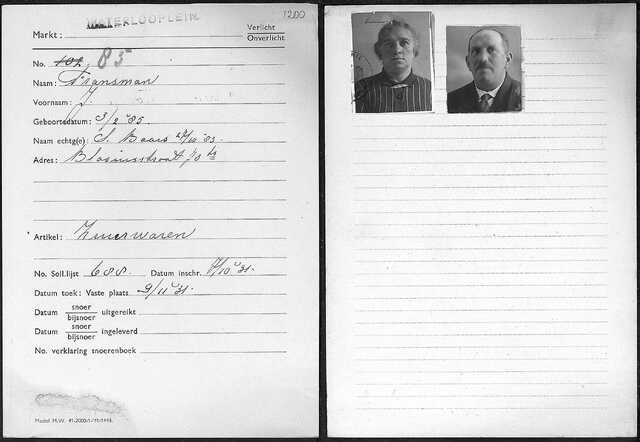 1200
Markt: WATERLOOPLEIN Verlicht
Onverlicht
No. 101, 85
Naam: Fransman
Voornaam: J.
Geboortedatum: 3/2 '85.
Naam echtg(e): S. Baars 27/10 '83.
Adres: Blasiusstraat 70 hs
Artikel: Zuurwaren
No. Soll.lijst 688. Datum inschr. 8/10 '31.
Datum toek: Vaste plaats 9/11 '31.
Datum snoer
bijsnoer uitgereikt
Datum snoer
bijsnoer ingeleverd
No. verklaring snoerenboek
Model M.W.